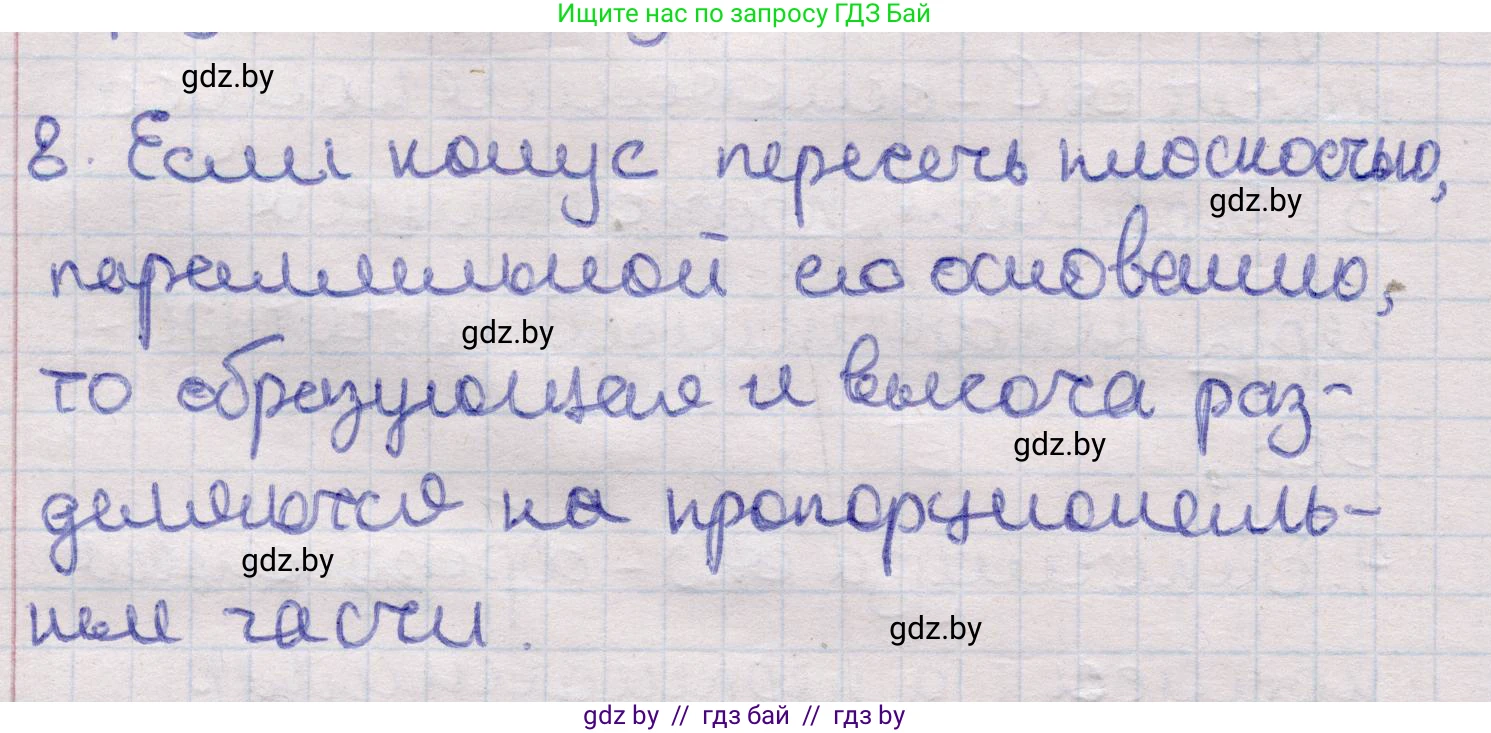 Ищите нас по запросу ГДЗ Бай
gdz.by
8. Если конус пересечь плоскостью,
gdz.by
параллельной его основанию,
gdz.by
то образующая и высота раз-
gdz.by
деляются на пропорциональ-
gdz.by
ные части.
gdz.by
gdz by // гдз бай // гдз by